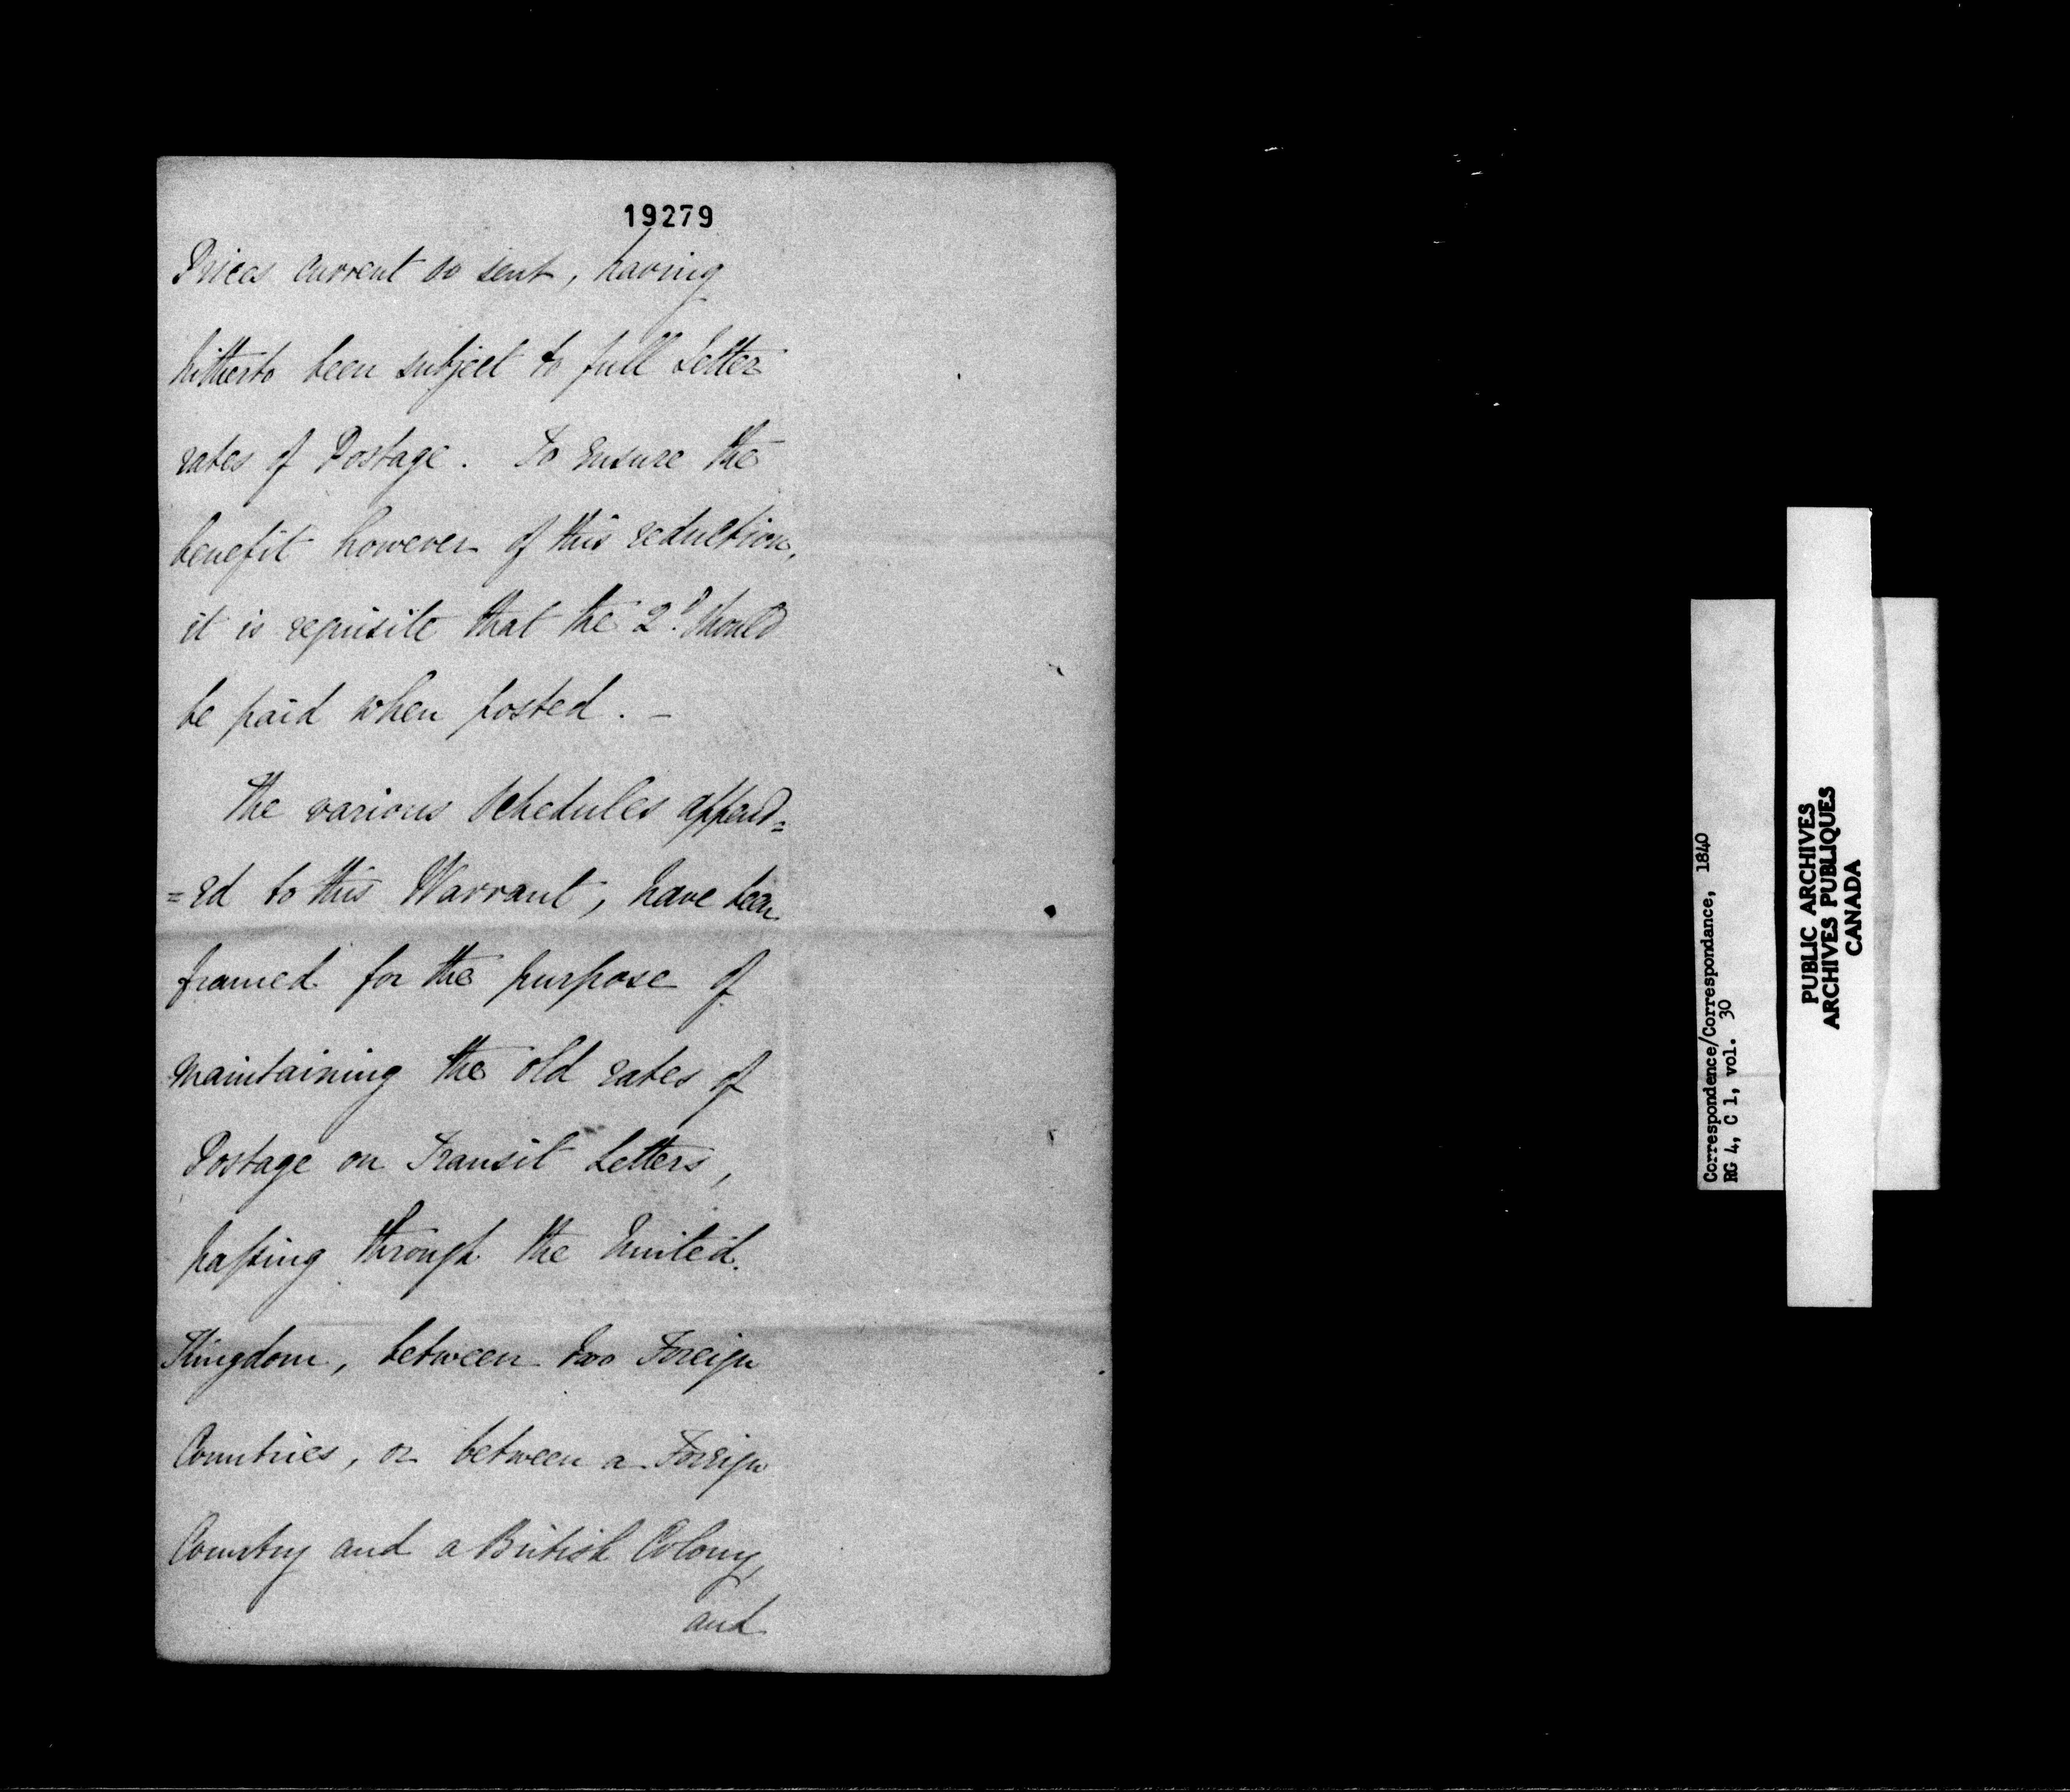 19279
Prices current so sent, having
hitherto been subject to full Letter
rates of Postage. To ensure the
benefit however of this reduction,
it is requisite that the 2d. should
be paid when posted. –
The various Schedules append=
=ed to this Warrant, have been
framed for the purpose of
maintaining the old rates of
Postage on Transit Letters,
passing through the United
Kingdom, between two Foreign
Countries, or between a Foreign
Country and a British Colony,
and
Correspondence/Correspondance, 1840
RG 4, C 1, vol. 30
PUBLIC ARCHIVES
ARCHIVES PUBLIQUES
CANADA